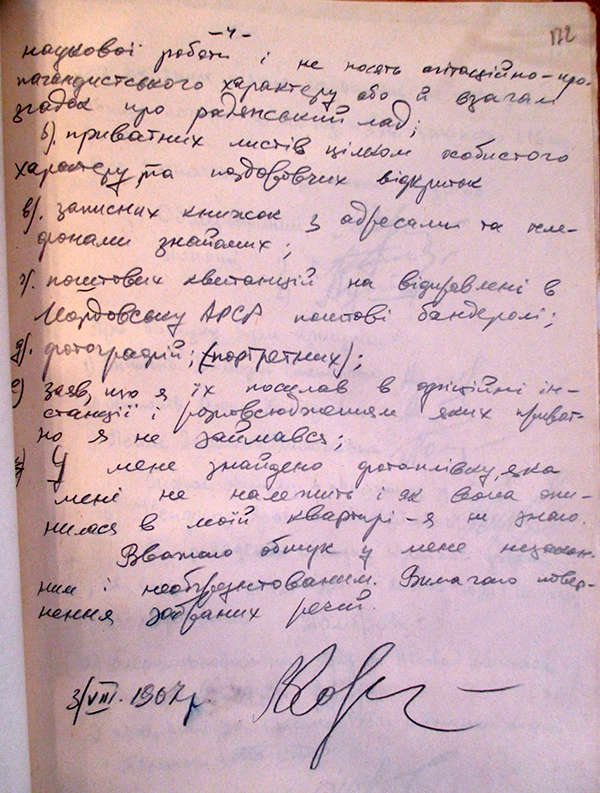 -4-
172
наукової роботи і не носять агітаційно-про-
пагандистського характеру або й взагалі
згадок про радянський лад;
б). приватних листів цілком особистого
характеру, та поздоровчих відкриток
в). записних книжок з адресами та теле-
фонами знайомих;
г). поштових квитанцій на відправлені в
Мордовську АРСР поштові бандеролі;
д). фотографій; (портретних);
е) заяв, що я їх посилав в офіційні ін-
станції і розповсюдженням яких приват-
но я не займався;
У мене знайдено фотоплівку, яка
мені не належить і як вона опи-
нилася в моїй квартирі - я не знаю.
Вважаю обшук у мене незакон-
ним і необґрунтованим. Вимагаю повер-
нення забраних речей.
3/VIII. 1967 р.